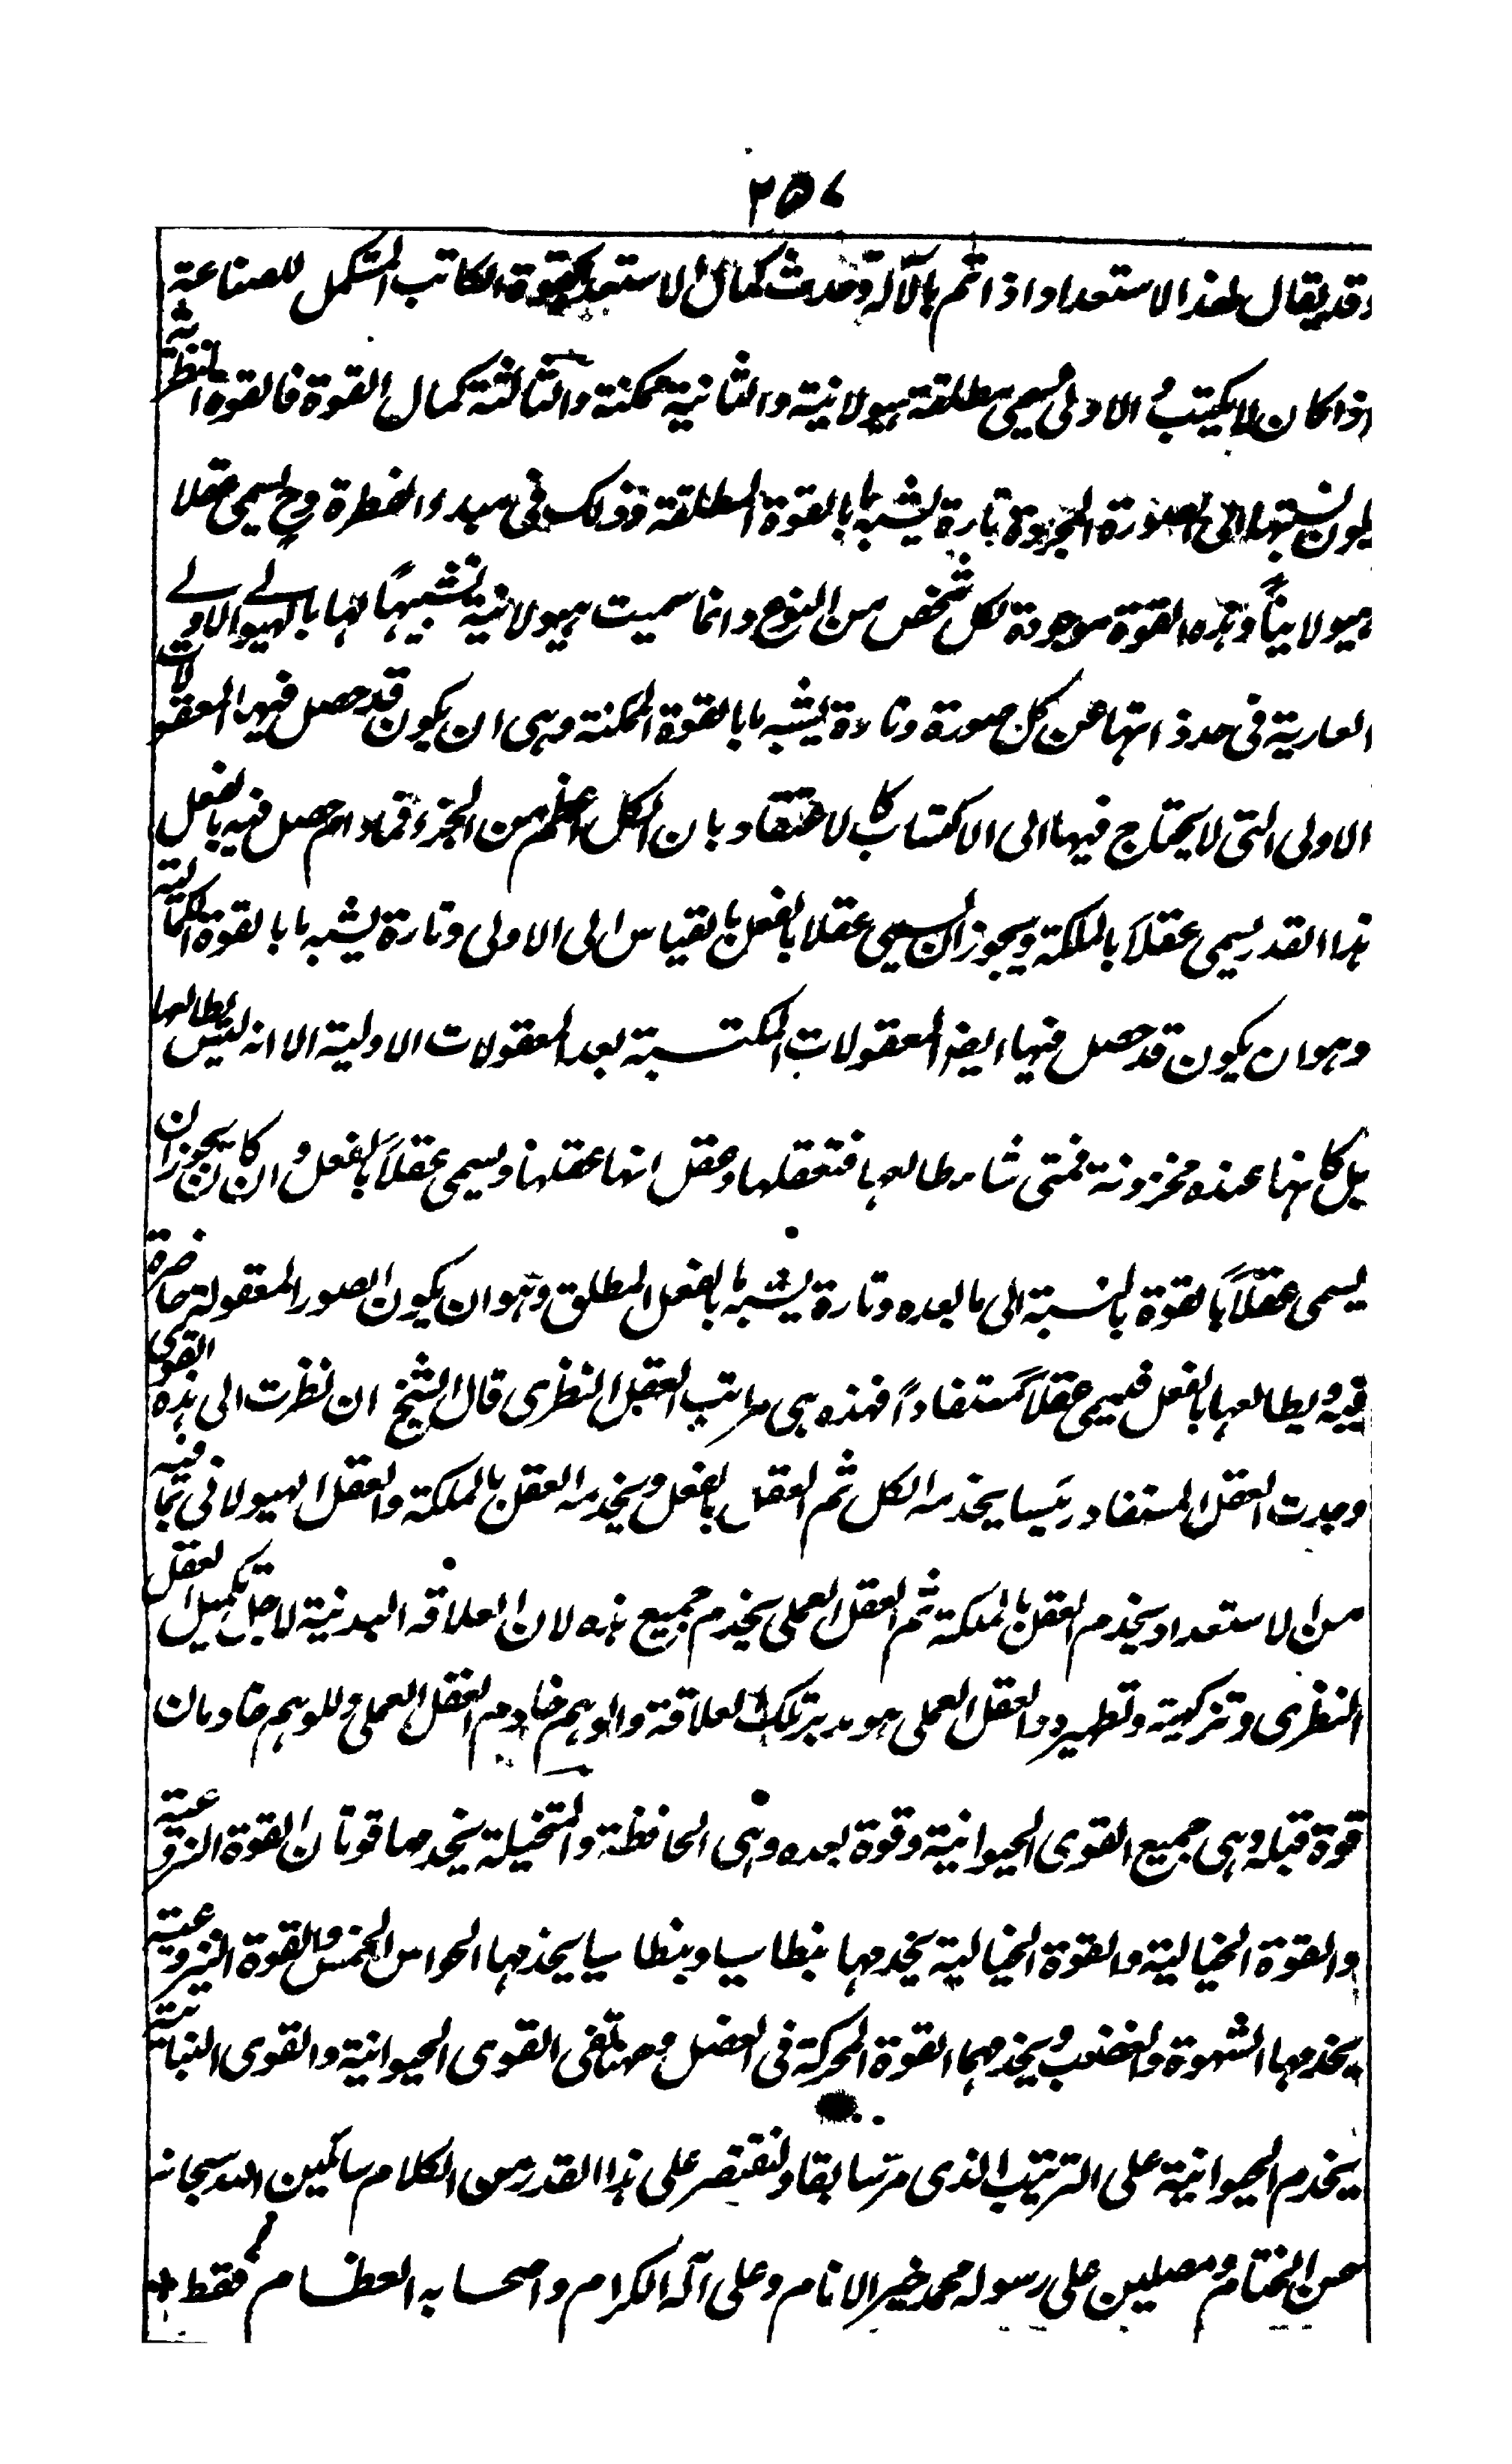 ٢٥٧
وقد يقال لهذا الاستعداد اذا تم بالآلة وحدث كمال الاستعداد كقوة الكاتب المستكمل للصناعة
اذا كان لا يكتب والاولى تسمى مطلقة هيولانية والثانية ممكنة والثالثة كمال القوة فالقوة النظرية
يكون نسبتها الى الصورة المجردة تارة يشبه ما بالقوة المطلقة وذلك فى مبدء الفطرة وح يسمى عقلا
هيولانياً وهذه القوة موجودة لكل شخص من النوع وانما سميت هيولانية تشبيهاً لها بالهيولے الاولے
العارية فى حد ذاتها عن كل صورة وتارة يشبه ما بالقوة الممكنة وهى ان يكون قد حصل فيها المعقولات
الاولى التى لا يحتاج فيها الى الاكتساب كالاعتقاد بان الكل اعظم من الجزء فما دام حصل فيه بالفعل
هذا القدر يسمى عقلاً بالملكة ويجوز ان يسمى عقلا بالفعل بالقياس الى الاولى وتارة يشبه ما بالقوة الكمالية
وهو ان يكون قد حصل فيها ايضا المعقولات المكتسبة بعد المعقولات الاولية الا انه ليس يطالعها
بل كانها عنده مخزونة فمتى شاء طالعها فتعقلها وعقل انها عقلها ويسمى عقلاً بالفعل وان كان يجوز ان
يسمى عقلاً بالقوة بالنسبة الى ما بعده وتارة يشبه ما بالفعل المطلق وهو ان يكون الصور المعقولة حاضرة
فيه ويطالعها بالفعل فيسمى عقلاً مستفاداً فهذه هى مراتب العقل النظرى قال الشيخ ان نظرت الى هذه القوى
وجدت العقل المستفاد رئيسا يخدمه الكل ثم العقل بالفعل ويخدمه العقل بالملكة والعقل الهيولانى بما فيه
من الاستعداد يخدم العقل بالملكة ثم العقل العملى يخدم جميع هذه لان العلاقة البدنية لاجل تكميل العقل
النظرى وتزكيته وتطهيره والعقل العملى هو مدبر تلك العلاقة والوهم خادم العقل العملى وللوهم خادمان
قوة قبله وهى جميع القوى الحيوانية وقوة بعده وهى الحافظة والمتخيلة يخدمها قوتان القوة النزوعية
والقوة الخيالية والقوة الخيالية يخدمها بنطاسيا وبنطاسيا يخدمها الحواس الخمس والقوة النزوعية
يخدمها الشهوة والغضب ويخدمهما القوة المحركة فى العضل وههنا تفنى القوى الحيوانية والقوى النباتية
يخدم الحيوانية على الترتيب الذى مر سابقا ولنقتصر على هذا القدر من الكلام سائلين الله سبحانه
حسن الختام ومصلين على رسوله محمد خير الانام وعلى آله الكرام واصحابه العظام فقط